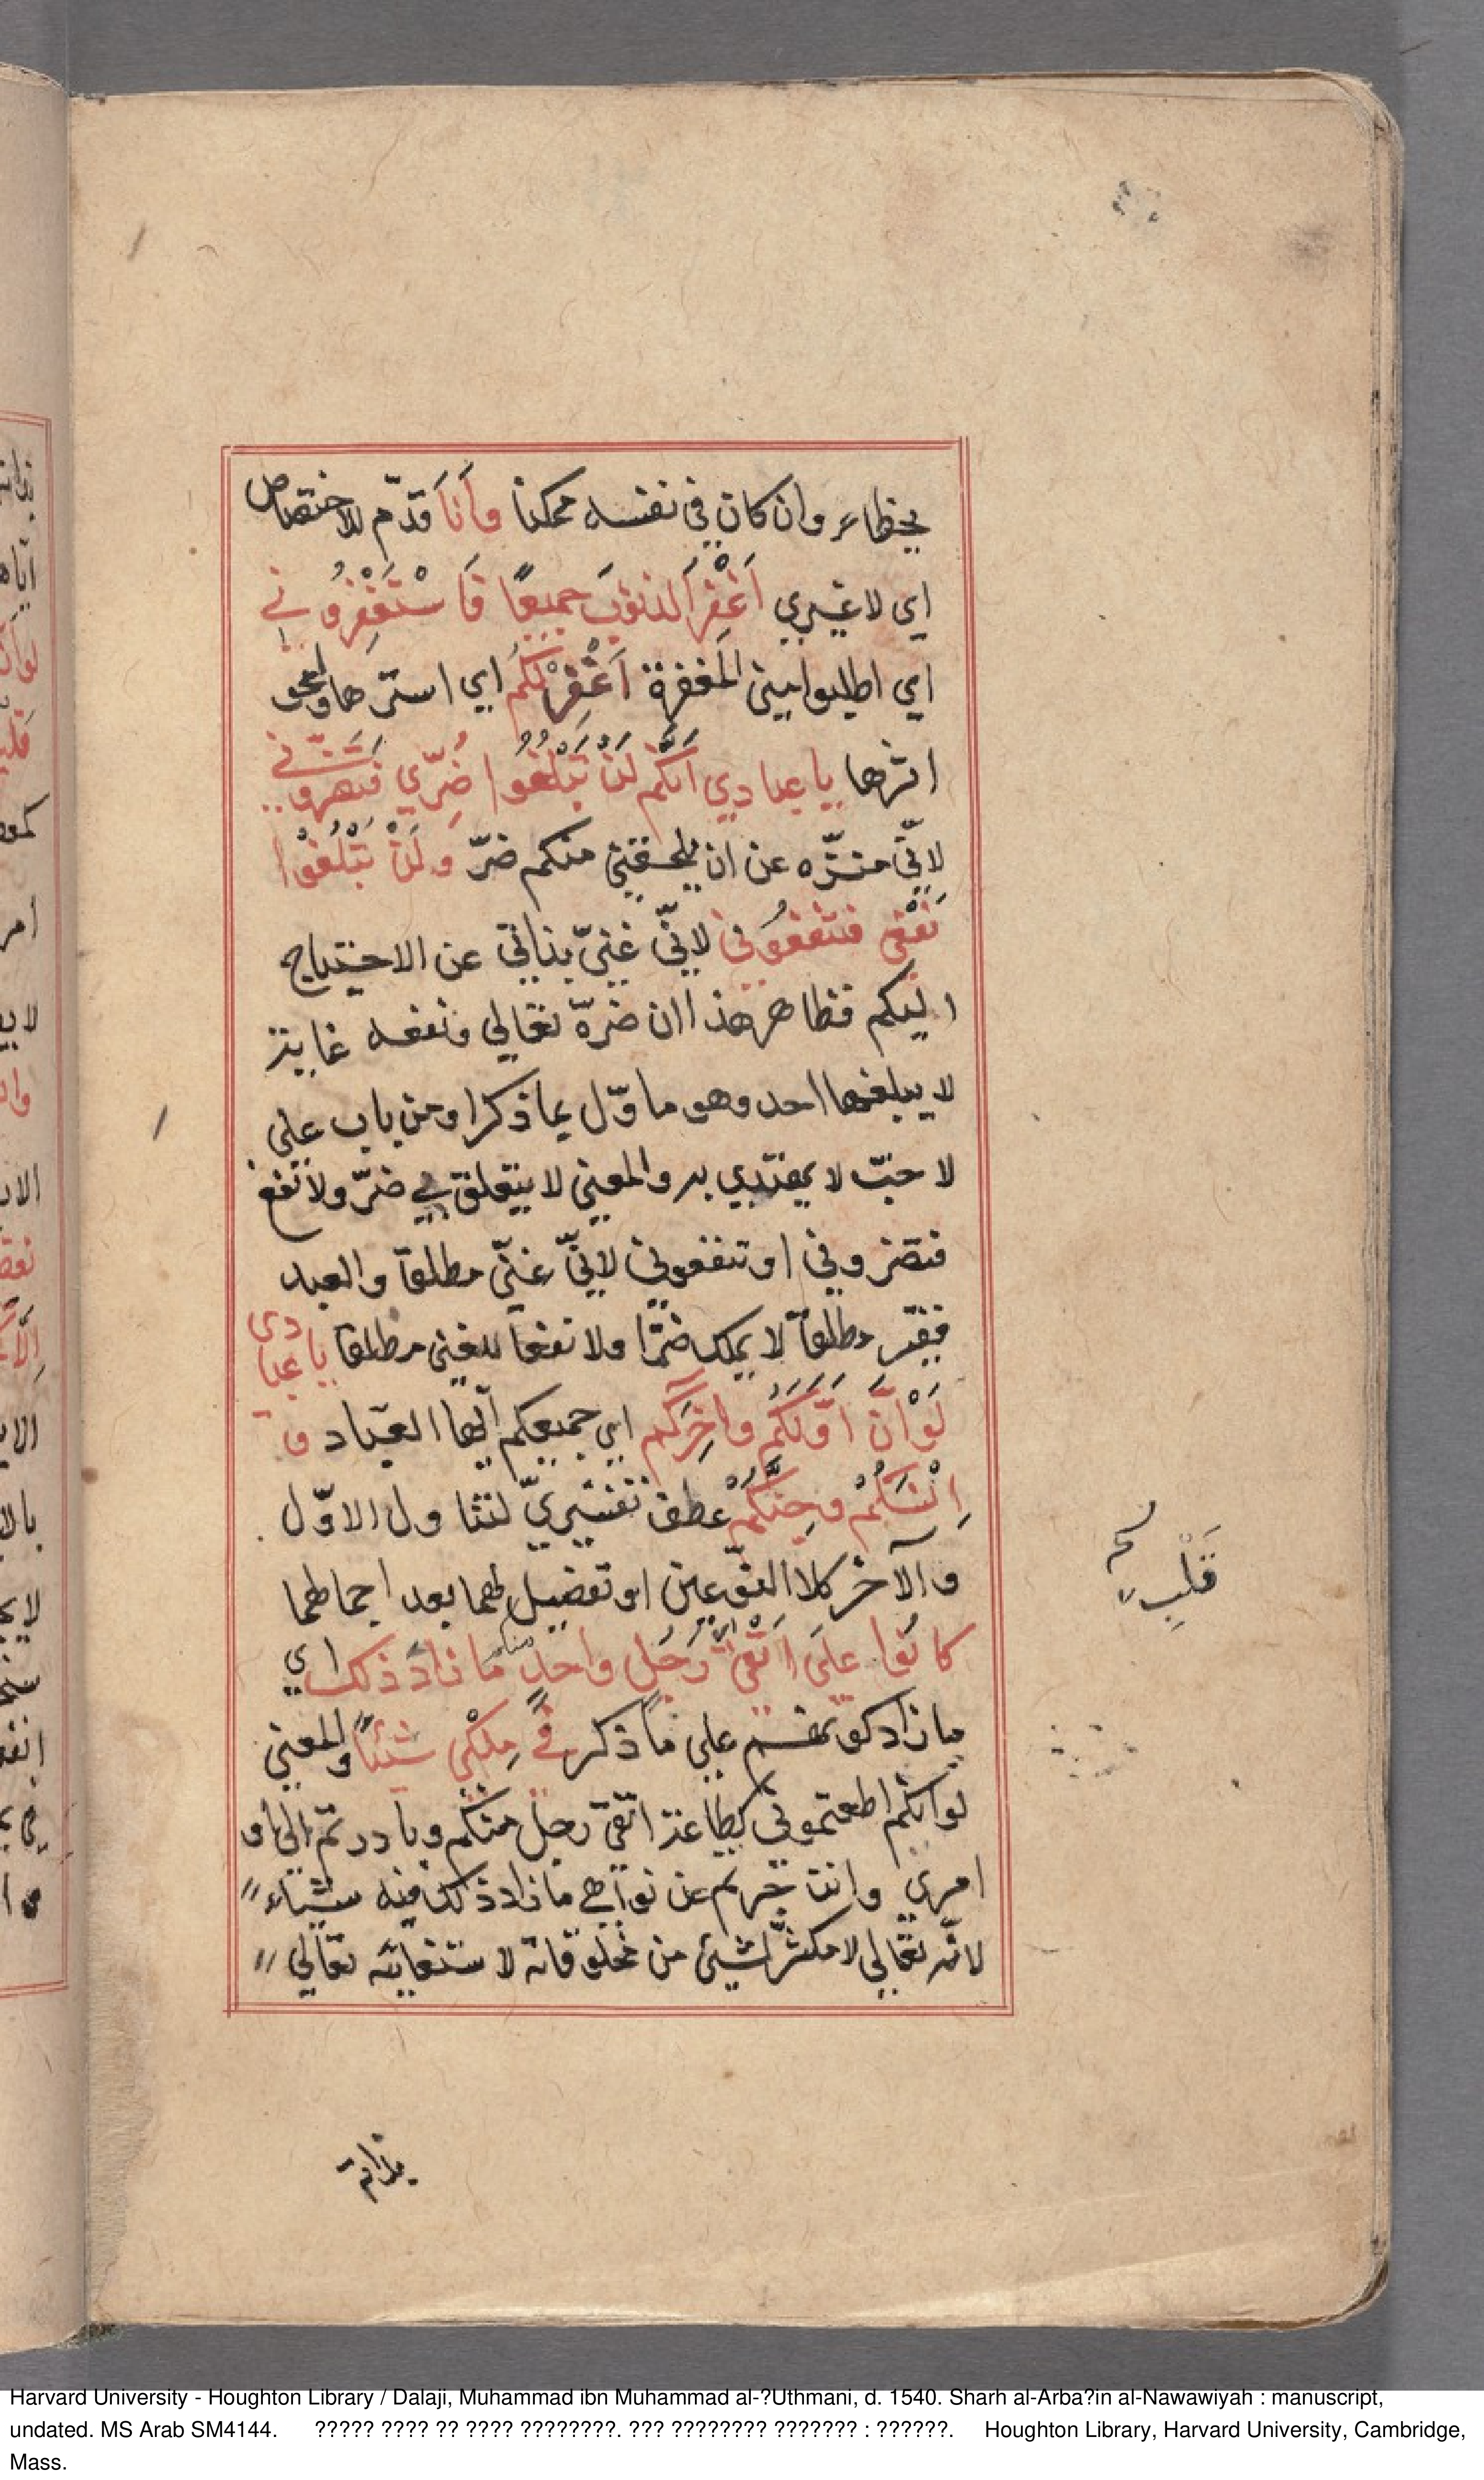 بخطاء وان كان في نفسه ممكنا وَأَنَا قدّم للاختصاص
اى لا غيري اَغْفِرُ الذنوبَ جميعًا فَاسْتَغْفِرُوني
اي اطلبوا مني المغفرة اَغْفِرْ لَكُم اي استرها وامحو
اثرها يا عبادي اَنَّكم لَنْ تَبْلُغُوا ضُرِّي فتضرّوني
لانّي منزّه عن ان يلحقني منكم ضرّ وَلَنْ تَبْلُغُوا
نَفْعِي فتنفعُوني لانّي غنيّ بذاتي عن الاحتياج
اليكم فظاهر هذا ان ضرّه تعالي ونفعه غاية
لا يبلغها احد وهو ماوّل بما ذكر او من باب علي
لا حبّ لا يهتدي به والمعني لا يتعلق بي ضرّ ولا نفع
فتضروني او تنفعوني لانّي غنيّ مطلقا والعبد
فقير مطلقا لا يملك ضرّا ولا نفعا للغني مطلقا يا عبادى
لَوْ اَنَّ اَوَّلَكُم واخِرَكُم اي جميعكم ايّها العباد و
اِنْسَكُمْ وجِنَّكُمْ عطف تفسيريّ لتناول الاوّل
والآخر كلا النوعين او تفصيل لهما بعد اجمالهما
كانوا علي اَتْقى رَجُلٍ واحد منكم مَا زادَ ذلك اي
ما زاد كونهم علي ما ذكر في مُلْكِي شَيْئًا والمعني
لو انّكم اطعتموني كطاعة اتّقي رجل منكم وبادرتم الي او
امري وانتهيتم عن نواهيّ ما زاد ذلك فيه شيئاء
لانّه تعالي لا مكثّر لشيئ من مخلوقاته لاستغنائه تعالي
قَلْبِ
بذاته
Harvard University - Houghton Library / Dalaji, Muhammad ibn Muhammad al-?Uthmani, d. 1540. Sharh al-Arba?in al-Nawawiyah : manuscript,
undated. MS Arab SM4144. ????? ???? ?? ???? ????????. ??? ???????? ??????? : ??????. Houghton Library, Harvard University, Cambridge,
Mass.